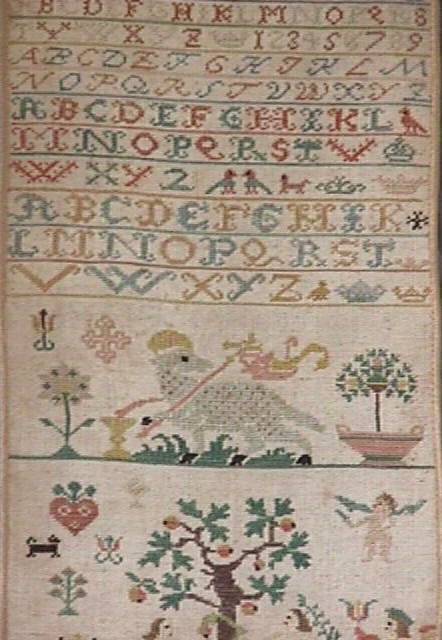 B D F H K M O Q
X Z 1 2 3 4 5 6 7 8 9
A B C D E F G H I K L M
N O P Q R S T V W X Y Z
A B C D E F G H I K L
M N O P Q R S T V
W X Y Z
A B C D E F G H I K
L M N O P Q R S T
V W X Y Z